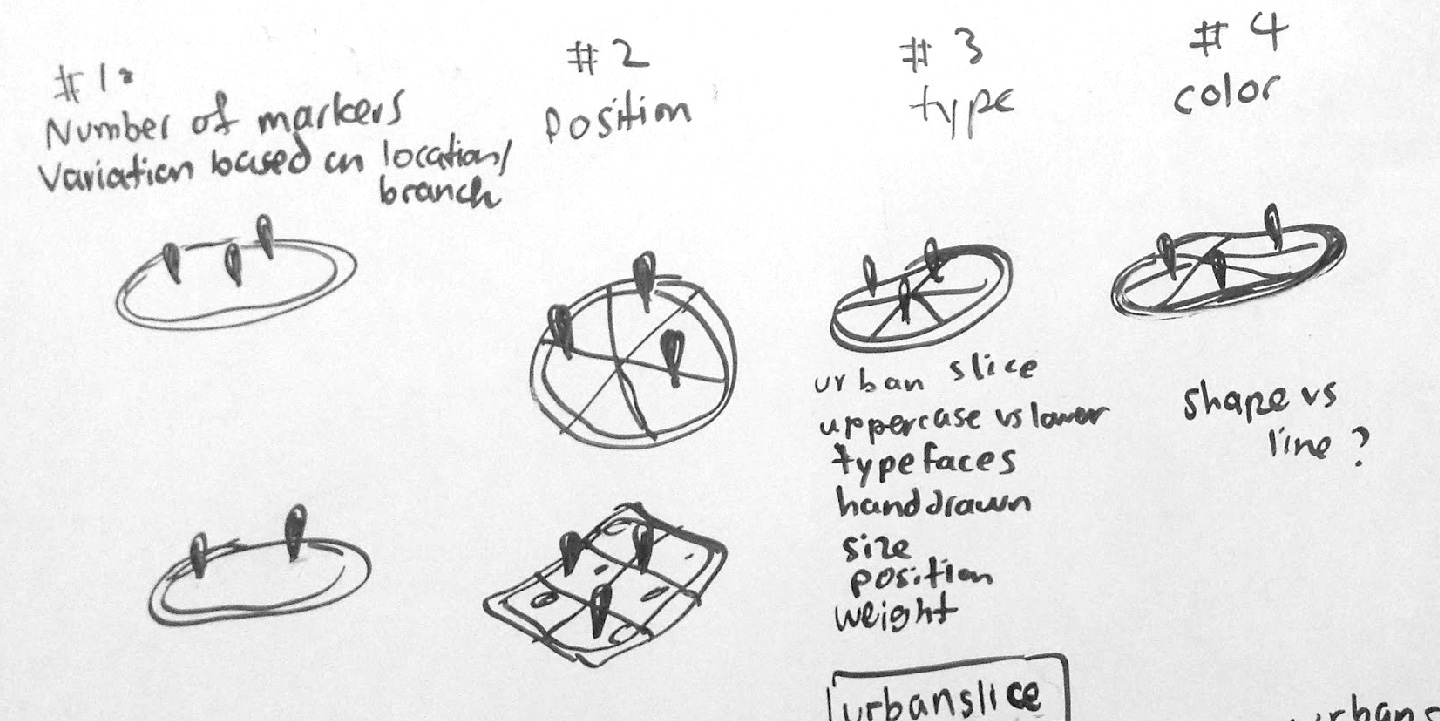 #1:
Number of markers
Variation based on location/
branch
#2
Position
#3
type
urban slice
uppercase vs lower
typefaces
handdrawn
size
position
weight
urbanslice
#4
color
shape vs
line?
urbans